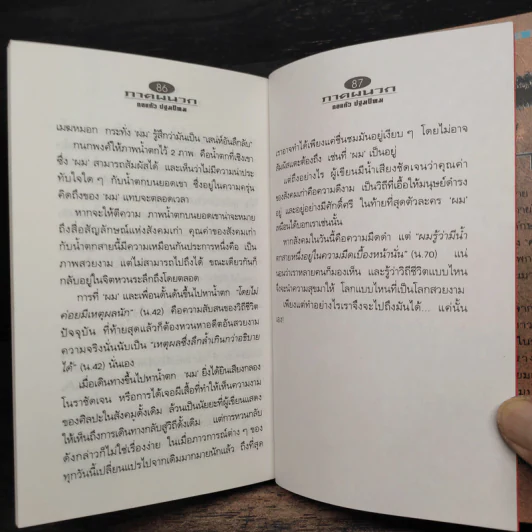 86
ภาคผนวก
เมฆหมอก กระทั่ง 'ผม' รู้สึกว่ามันเป็น "เสน่ห์อันลึกลับ"
กนกพงศ์ให้ภาพน้ำตกไว้ 2 ภาพ คือน้ำตกที่เชิงเขา
ซึ่ง 'ผม' สามารถสัมผัสได้ และเห็นว่าไม่มีความน่าประ
ทับใจใด ๆ กับน้ำตกบนยอดเขา ซึ่งอยู่ในความครุ่น
คิดถึงของ 'ผม' แทบจะตลอดเวลา
หากจะให้ตีความ ภาพน้ำตกบนยอดเขาน่าจะหมาย
ถึงสื่อสัญลักษณ์แห่งสังคมเก่า คุณค่าของสังคมเก่า
กับน้ำตกสายนี้มีความเหมือนกันประการหนึ่งคือ เป็น
ภาพสวยงาม แต่ไม่สามารถไปถึงได้ ขณะเดียวกันก็
กลับอยู่ในจิตหวนระลึกถึงโดยตลอด
การที่ 'ผม' และเพื่อนดั้นด้นขึ้นไปหาน้ำตก "โดยไม่
ค่อยมีเหตุผลนัก" (น.42) คือความสับสนของวิถีชีวิต
ปัจจุบัน ที่ท้ายสุดแล้วก็ต้องหวนหาอดีตอันสวยงาม
ความจริงนั่นนับเป็น "เหตุผลซึ่งลึกล้ำเกินกว่าอธิบาย
ได้" (น.42) นั่นเอง
เมื่อเดินทางขึ้นไปหาน้ำตก 'ผม' ยิ่งได้ยินเสียงกลอง
โนราชัดเจน หรือการได้เจอผีเสื้อที่ทำให้เห็นความงาม
ของศิลปะในสังคมดั้งเดิม ล้วนเป็นนัยยะที่ผู้เขียนแสดง
ให้เห็นถึงการเดินทางกลับสู่วิถีดั้งเดิม แต่การหวนกลับ
ดังกล่าวก็ไม่ใช่เรื่องง่าย ในเมื่อภาวการณ์ต่าง ๆ ของ
ทุกวันนี้เปลี่ยนแปรไปจากเดิมมากมายนักแล้ว ถึงที่สุด
87
ภาคผนวก
เราอาจทำได้เพียงแค่ชื่นชมมันอยู่เงียบ ๆ โดยไม่อาจ
สัมผัสแตะต้องถึง เช่นที่ 'ผม' เป็นอยู่
แต่ถึงอย่างไร ผู้เขียนมีน้ำเสียงชัดเจนว่าคุณค่า
ของสังคมเก่าคือความดีงาม เป็นวิถีที่เอื้อให้มนุษย์ดำรง
อยู่ และอยู่อย่างมีศักดิ์ศรี ในท้ายที่สุดตัวละคร 'ผม'
เสมือนได้บอกเราเช่นนั้น
หากสังคมในวันนี้คือความมืดดำ แต่ "ผมรู้ว่ามีน้ำ
ตกสายหนึ่งอยู่ในความมืดเบื้องหน้านั่น" (น.70) แน่
นอนว่าเราหลายคนก็มองเห็น และรู้ว่าวิถีชีวิตแบบไหน
จึงจะนำความสุขมาให้ โลกแบบไหนที่เป็นโลกสวยงาม
เพียงแต่ทำอย่างไรเราจึงจะไปถึงมันได้... แค่นั้น
เอง!